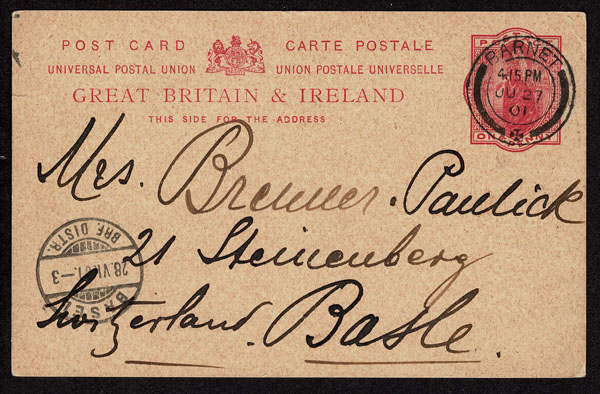 POST CARD CARTE POSTALE
UNIVERSAL POSTAL UNION UNION POSTALE UNIVERSELLE
GREAT BRITAIN & IRELAND
THIS SIDE FOR THE ADDRESS
BARNET
4.15 PM
JU 27
01
ONE PENNY
Mrs. Brenner. Paulick
21 Steinenberg
Switzerland. Basle.
BRF. DISTR.
28.VI.01.—3
BASEL